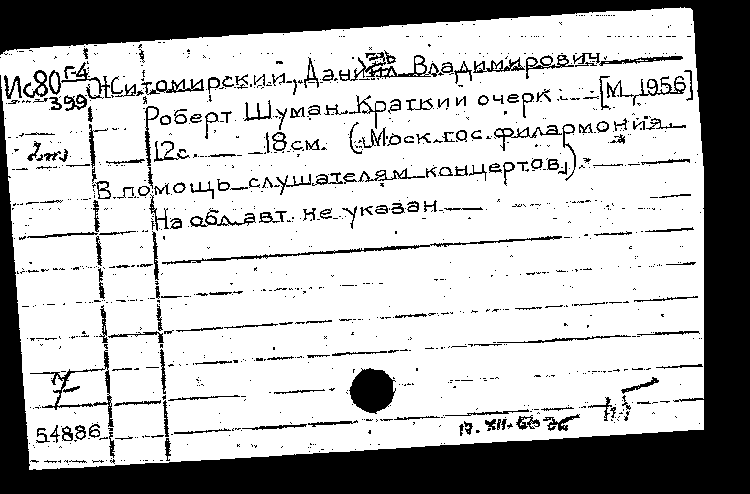 Ис80 Г-4 Житомирский, Даниил Владимирович.
399 Роберт Шуман. Краткий очерк. — [М., 1956]
12 с. 18 см. (Моск. гос. филармония.
В помощь слушателям концертов).
На обл. авт. не указан
7
54886
17. XII-56